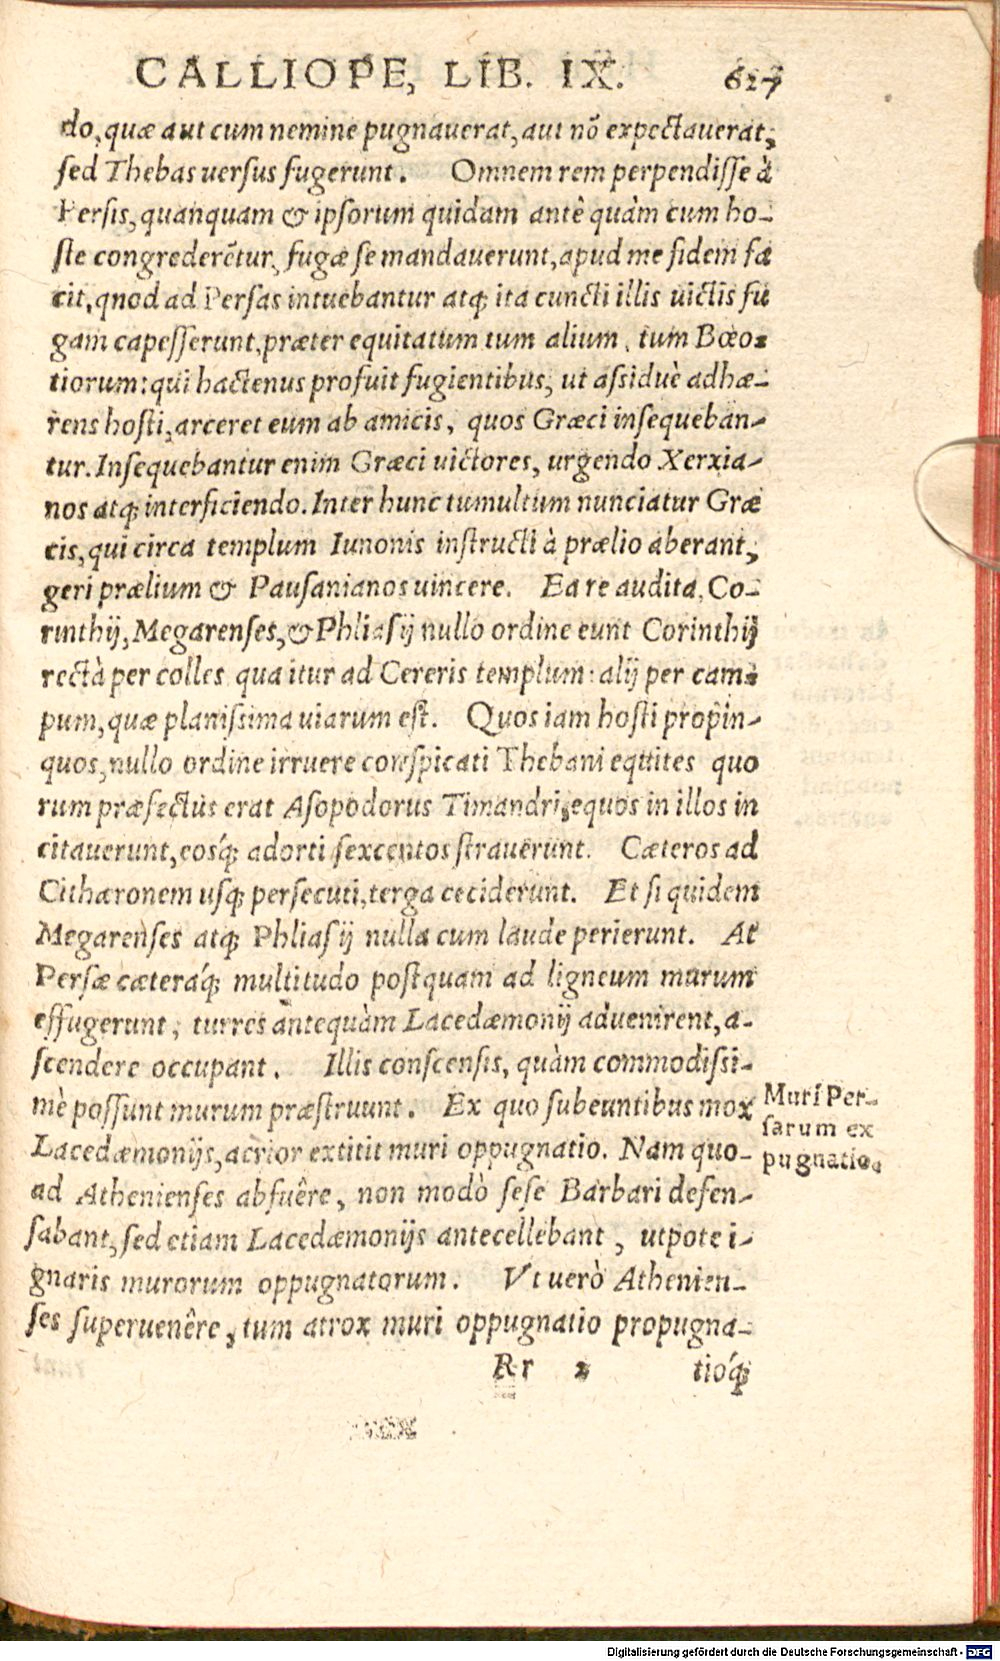 CALLIOPE, LIB. IX. 627
do, quæ aut cum nemine pugnauerat, aut nõ expectauerat,
sed Thebas uersus fugerunt. Omnem rem perpendisse à
Persis, quanquam & ipsorum quidam antè quàm cum ho-
ste congrederẽtur, fugæ se mandauerunt, apud me fidem fa
cit, qnod ad Persas intuebantur atq; ita cuncti illis uictis fu
gam capesserunt, præter equitatum tum alium, tum Bœo-
tiorum: qui hactenus profuit fugientibus, ut assiduè adhæ-
rens hosti, arceret eum ab amicis, quos Græci insequeban-
tur. Insequebantur enim Græci uictores, urgendo Xerxia-
nos atq; interficiendo. Inter hunc tumultum nunciatur Græ
cis, qui circa templum Iunonis instructi à prælio aberant,
geri prælium & Pausanianos uincere. Ea re audita, Co-
rinthij, Megarenses, & Phliasij nullo ordine eunt Corinthij
rectà per colles qua itur ad Cereris templum: alij per cam-
pum, quæ planissima uiarum est. Quos iam hosti propin-
quos, nullo ordine irruere conspicati Thebani equites quo
rum præfectus erat Asopodorus Timandri, equos in illos in
citauerunt, eosq́; adorti sexcentos strauerunt. Cæteros ad
Cithæronem usq; persecuti, terga ceciderunt. Et si quidem
Megarenses atq; Phliasij nulla cum laude perierunt. At
Persæ cæteraq́; multitudo postquam ad ligneum murum
effugerunt, turres antequàm Lacedæmonij aduenirent, a-
scendere occupant. Illis conscensis, quàm commodissi-
mè possunt murum præstruunt. Ex quo subeuntibus mox
Lacedæmonijs, acrior extitit muri oppugnatio. Nam quo-
ad Athenienses absuêre, non modò sese Barbari defen-
sabant, sed etiam Lacedæmonijs antecellebant, utpote i-
gnaris murorum oppugnatorum. Vt uerò Athenien-
ses superuenêre, tum atrox muri oppugnatio propugna-
Muri Per-
sarum ex
pugnatio.
Rr 2 tioq́;
Digitalisierung gefördert durch die Deutsche Forschungsgemeinschaft - DFG